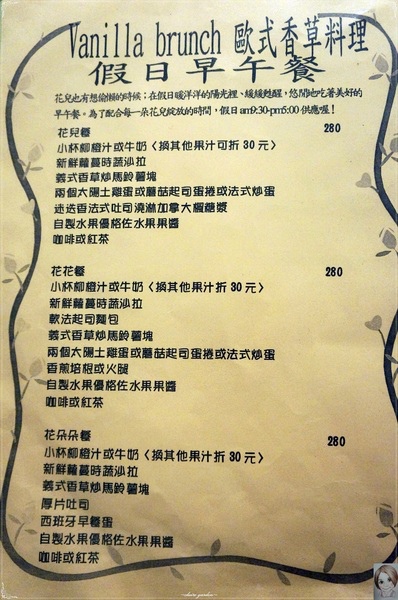 Vanilla brunch 歐式香草料理
假日早午餐
花兒也有想偷懶的時候；在假日暖洋洋的陽光裡、緩緩甦醒，悠閒地吃著美好的
早午餐。為了配合每一朵花兒綻放的時間，假日am9:30-pm5:00 供應喔！
花兒餐 280
小杯柳橙汁或牛奶〈換其他果汁可折30元〉
新鮮蘿蔓時蔬沙拉
義式香草炒馬鈴薯塊
兩個太陽土雞蛋或蘑菇起司蛋捲或法式炒蛋
迷迭香法式吐司澆淋加拿大楓糖漿
自製水果優格佐水果果醬
咖啡或紅茶
花花餐 280
小杯柳橙汁或牛奶〈換其他果汁折30元〉
新鮮蘿蔓時蔬沙拉
軟法起司麵包
義式香草炒馬鈴薯塊
兩個太陽土雞蛋或蘑菇起司蛋捲或法式炒蛋
香煎培根或火腿
自製水果優格佐水果果醬
咖啡或紅茶
花朵朵餐 280
小杯柳橙汁或牛奶〈換其他果汁折30元〉
新鮮蘿蔓時蔬沙拉
義式香草炒馬鈴薯塊
厚片吐司
西班牙早餐蛋
自製水果優格佐水果果醬
咖啡或紅茶